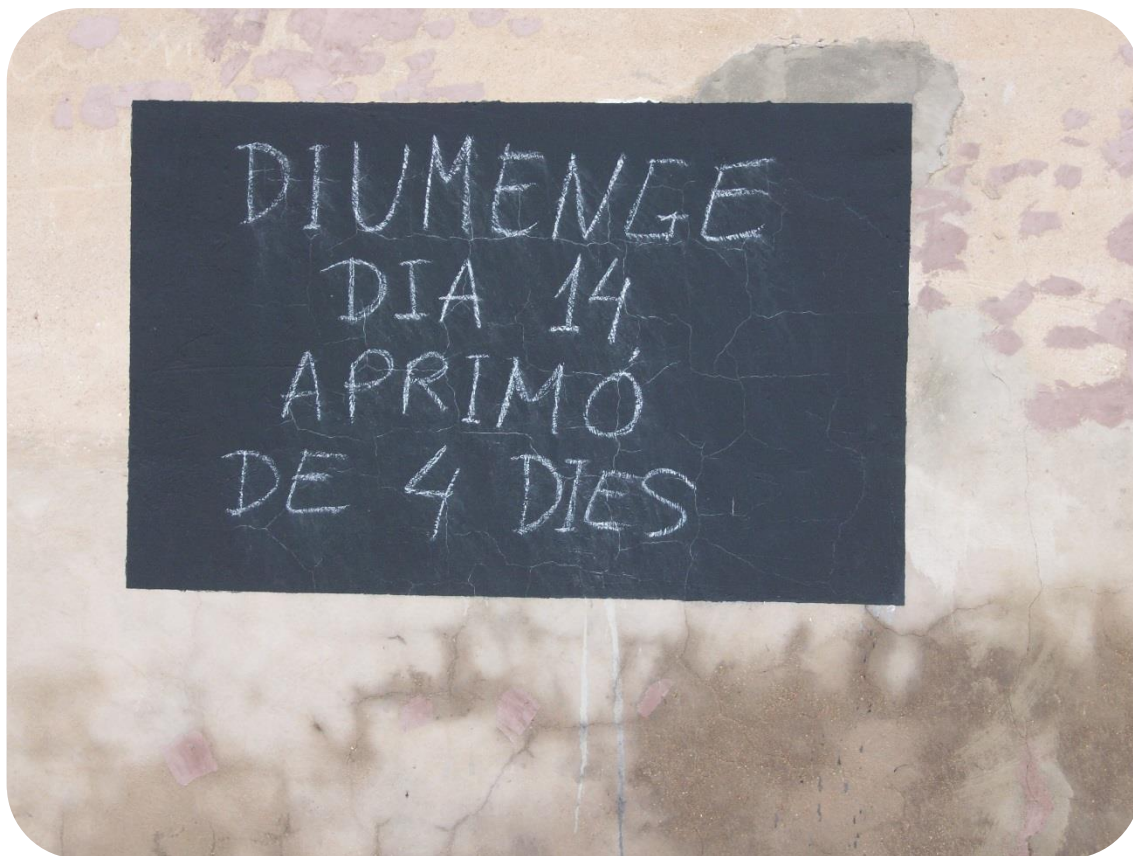 DIUMENGE
DIA 14
APRIMÓ
DE 4 DIES